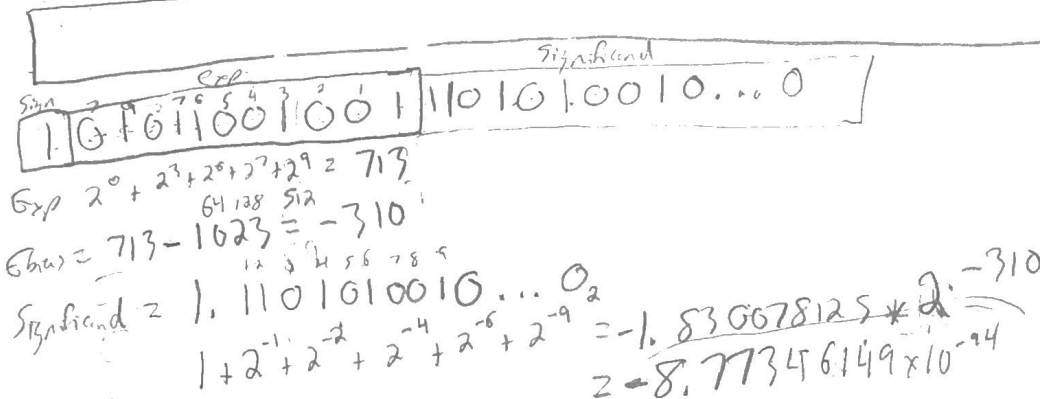 Significand
Sign exp.
1 01011001001 110101.0010... 0
Exp 2^0 + 2^3 + 2^6 + 2^7 + 2^9 = 713
64 128 512
Ebias = 713 - 1023 = -310
1 2 3 4 5 6 7 8 9
Significand = 1. 1101010010... 0₂
1 + 2^-1 + 2^-2 + 2^-4 + 2^-6 + 2^-9 = -1.830078125 * 2^-310
= -8.77346149 x 10^-94